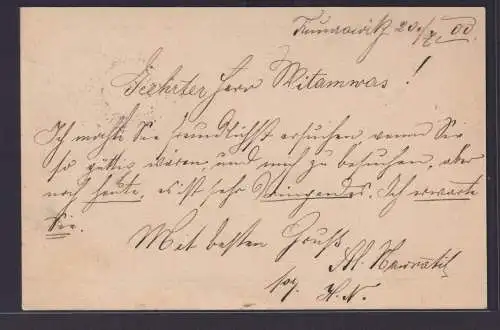 20./7. 00.
Geehrter Herr Witamwas!
Ich möchte Sie freundlichst ersuchen wenn Sie
so gütig wären, und mich zu besuchen, aber
noch heute, es ist sehr Dringendes. Ich erwarte
Sie.
Mit besten Gruß
Al. Nawratil
H. N.